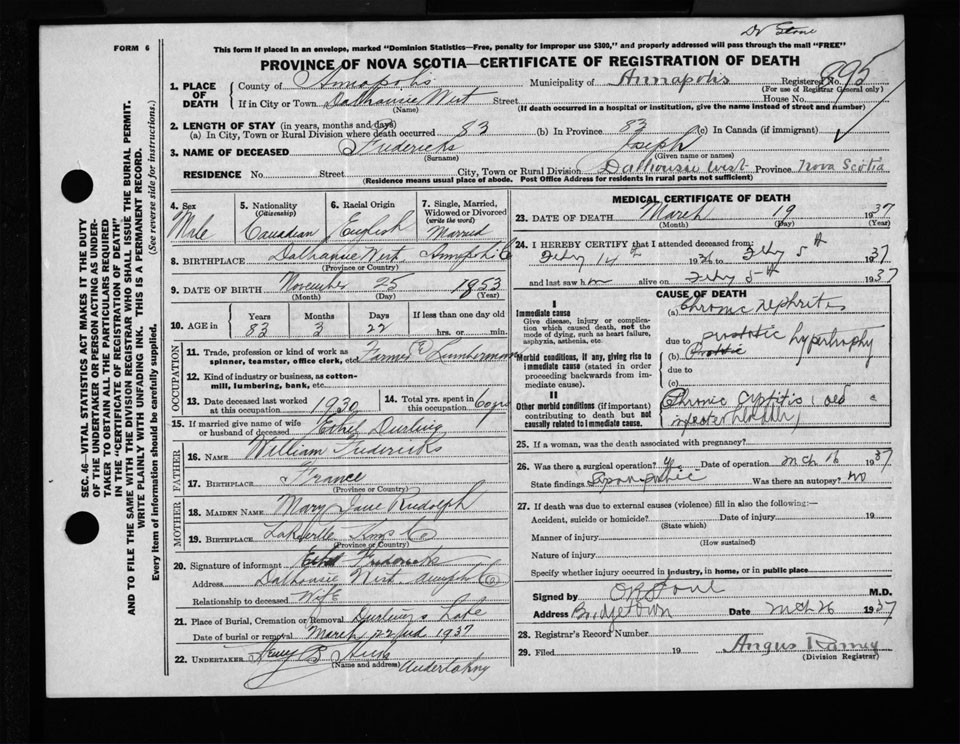 Dr Stone
FORM 6
This form if placed in an envelope, marked "Dominion Statistics—Free, penalty for improper use $300," and properly addressed will pass through the mail "FREE"
PROVINCE OF NOVA SCOTIA—CERTIFICATE OF REGISTRATION OF DEATH
1. PLACE OF DEATH
County of Annapolis Municipality of Annapolis Registered No. 895
(For use of Registrar General only)
If in City or Town Dalhousie West Street House No.
(Name) (If death occurred in a hospital or institution, give the name instead of street and number)
2. LENGTH OF STAY (in years, months and days)
(a) In City, Town or Rural Division where death occurred 83 (b) In Province 83 (c) In Canada (if immigrant)
3. NAME OF DECEASED Fredericks Joseph
(Surname) (Given name or names)
RESIDENCE No. Street City, Town or Rural Division Dalhousie West Province Nova Scotia
(Residence means usual place of abode. Post Office Address for residents in rural parts not sufficient)
SEC. 46—VITAL STATISTICS ACT MAKES IT THE DUTY
OF THE UNDERTAKER OR PERSON ACTING AS UNDER-
TAKER TO OBTAIN ALL THE PARTICULARS REQUIRED
IN THE "CERTIFICATE OF REGISTRATION OF DEATH"
AND TO FILE THE SAME WITH THE DIVISION REGISTRAR WHO SHALL ISSUE THE BURIAL PERMIT.
WRITE PLAINLY WITH UNFADING INK. THIS IS A PERMANENT RECORD.
Every item of Information should be carefully supplied. (See reverse side for instructions.)
4. Sex
Male
5. Nationality
(Citizenship)
Canadian
6. Racial Origin
English
7. Single, Married,
Widowed or Divorced
(write the word)
Married
8. BIRTHPLACE Dalhousie West Annapolis Co
(Province or Country)
9. DATE OF BIRTH November 25 1853
(Month) (Day) (Year)
10. AGE in
Years Months Days If less than one day old
83 3 22 hrs. or min.
OCCUPATION
11. Trade, profession or kind of work as
spinner, teamster, office clerk, etc. Farmer & Lumberman
12. Kind of industry or business, as cotton-
mill, lumbering, bank, etc.
13. Date deceased last worked
at this occupation 1930
14. Total yrs. spent in
this occupation 60 yrs
15. If married give name of wife
or husband of deceased Ethel Durling
FATHER
16. Name William Fredericks
17. Birthplace France
(Province or Country)
MOTHER
18. Maiden Name Mary Jane Rudolph
19. Birthplace Lakeville Co
(Province or Country)
20. Signature of informant Fredericks
Address Dalhousie West
Relationship to deceased Wife
21. Place of Burial, Cremation or Removal Durling's Lake
Date of burial or removal March 22nd 1937
22. UNDERTAKER
(Name and address)
MEDICAL CERTIFICATE OF DEATH
23. DATE OF DEATH March 19 1937
(Month) (Day) (Year)
24. I HEREBY CERTIFY that I attended deceased from:
Feby 14th 1936 to Feby 5th 1937
and last saw him alive on Feby 5th 1937
CAUSE OF DEATH
I
Immediate cause
Give disease, injury or complica-
tion which caused death, not the
mode of dying, such as heart failure,
asphyxia, asthenia, etc.
(a) Chronic nephritis
due to prostatic hypertrophy
Morbid conditions, if any, giving rise to
immediate cause (stated in order
proceeding backwards from im-
mediate cause).
(b)
due to
(c)
II
Other morbid conditions (if important)
contributing to death but not
causally related to immediate cause.
Chronic cystitis
25. If a woman, was the death associated with pregnancy?
26. Was there a surgical operation? yes Date of operation Mch 16 1937
State findings Suprapubic Was there an autopsy? no
27. If death was due to external causes (violence) fill in also the following:—
Accident, suicide or homicide? Date of injury 19
(State which)
Manner of injury
(How sustained)
Nature of injury
Specify whether injury occurred in industry, in home, or in public place
Signed by M.D.
Address Bridgetown Date Mch 26 1937
28. Registrar's Record Number
29. Filed 19 Angus Ramey
(Division Registrar)